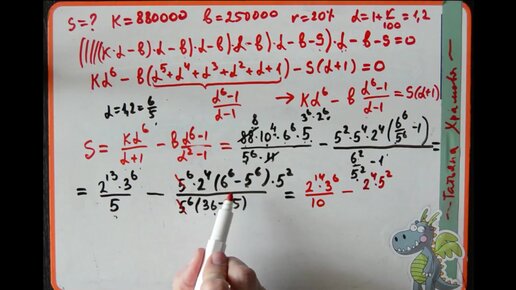 S=? K=880000 b=250000 r=20% α=1+r/100=1,2
(((((K·α-b)·α-b)·α-b)·α-b)·α-b-S)·α-b-S=0
Kα⁶-b(α⁵+α⁴+α³+α²+α+1)-S(α+1)=0
α=1,2=6/5 (α⁶-1)/(α-1) → Kα⁶-b (α⁶-1)/(α-1) = S(α+1)
8 3⁶·2⁶
S = Kα⁶/(α+1) - b (α⁶-1)/(α²-1) = (88·10⁴·6⁶·5)/(5⁶·11) - (5²·5⁴·2⁴(6⁶/5⁶-1))/(6²/5²-1) =
= (2¹³·3⁶)/5 - (5⁶·2⁴(6⁶-5⁶)·5²)/(5⁶(36- 5)) = (2¹⁴3⁶)/10 - 2⁴5²
~Татьяна Храмова~